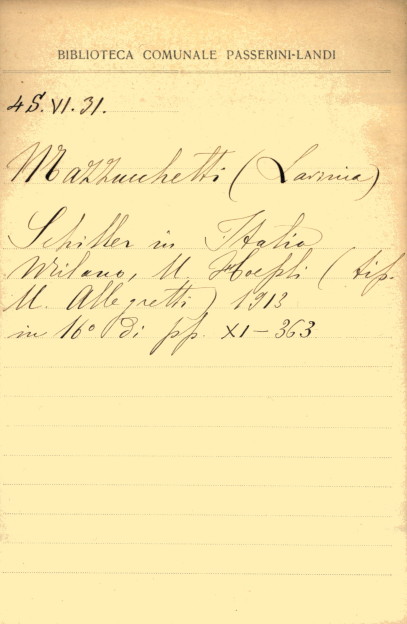 BIBLIOTECA COMUNALE PASSERINI-LANDI
4S.VI.31.
Mazzucchetti (Lavinia)
Schiller in Italia
Milano, U. Hoepli (tip.
U. Allegretti) 1913
in 16° di pp. XI-363